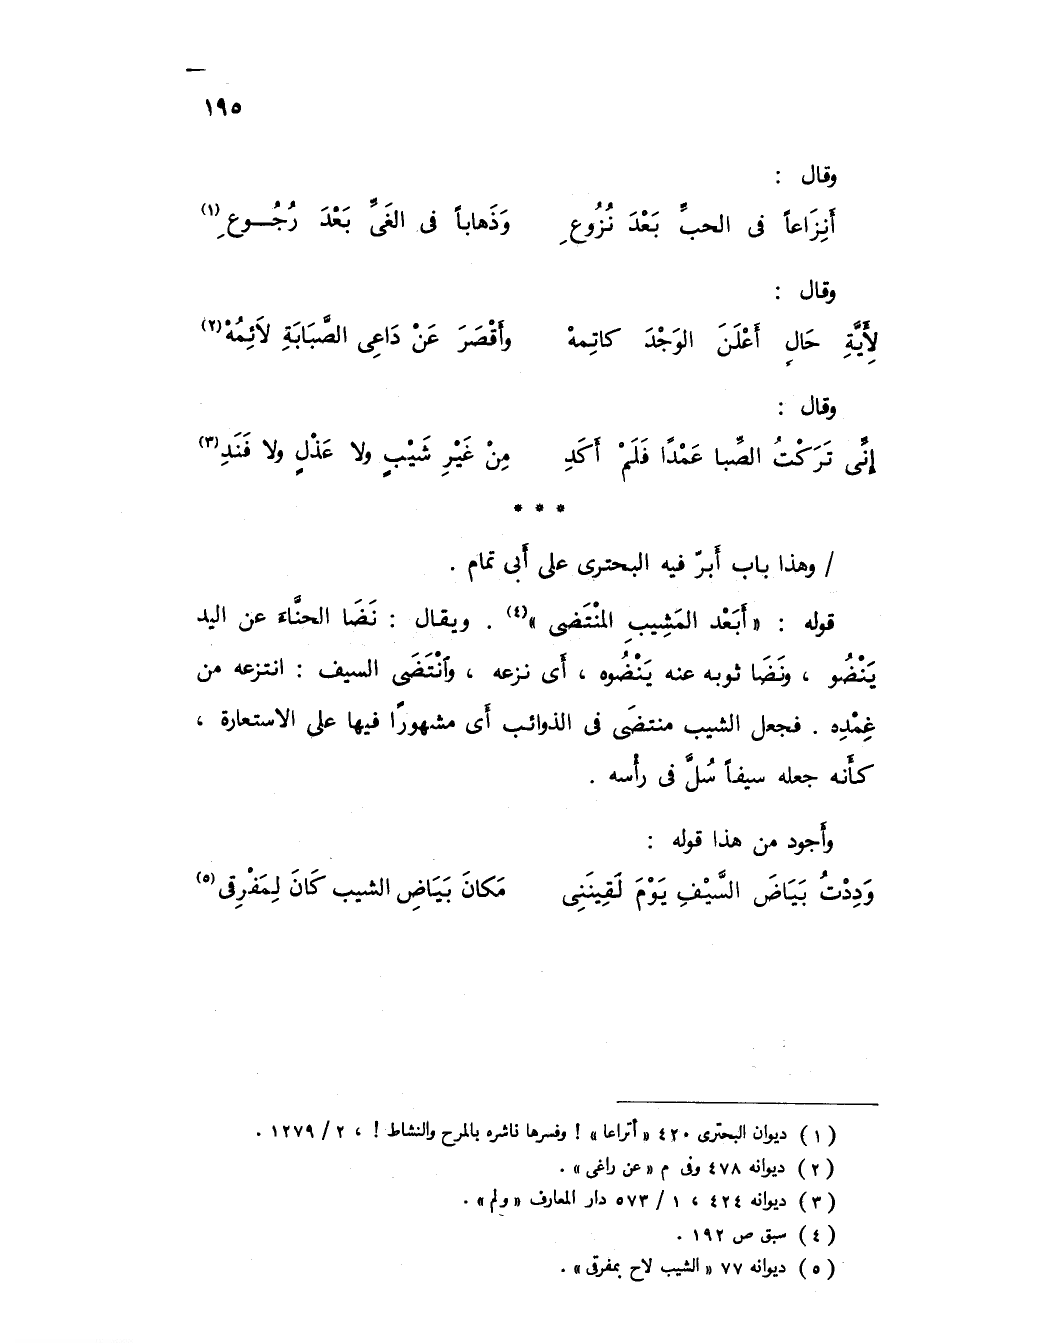 ١٩٥
وقال :
أَنِزَاعاً فى الحبِّ بَعْدَ نُزُوعِ وَذَهاباً فى الغَىِّ بَعْدَ رُجُوعِ(١)
وقال :
لِأَيَّةِ حَالٍ أَعْلَنَ الوَجْدَ كاتِمهْ وأَقْصَرَ عَنْ دَاعِى الصَّبَابَةِ لاَئِمُهْ(٢)
وقال :
إنِّى تَرَكْتُ الصِّبا عَمْدًا فَلَمْ أَكَدِ مِنْ غَيْرِ شَيْبٍ ولا عَذْلٍ ولا فَنَدِ(٣)
* * *
/ وهذا باب أَبرّ فيه البحترى على أَبى تمام .
قوله : « أَبَعْد المَشِيبِ المُنْتَضى »(٤) . ويقال : نَضَا الحنَّاءَ عن اليد
يَنْضُو ، ونَضَا ثوبه عنه يَنْضُوه ، أَى نزعه ، وٱنْتَضَى السيف : انتزعه من
غِمْدِه . فجعل الشيب منتضًى فى الذوائب أَى مشهورًا فيها على الاستعارة ،
كأَنه جعله سيفاً سُلَّ فى رأْسه .
وأَجود من هذا قوله :
وَدِدْتُ بَيَاضَ السَّيْفِ يَوْمَ لَقِينَنِى مَكانَ بَيَاضِ الشيب كَانَ لِمَفْرِقى(٥)
(١) ديوان البحترى ٤٢٠ « أتراعا » ! وفسرها ناشره بالمرح والنشاط ! ، ٢ / ١٢٧٩ .
(٢) ديوانه ٤٧٨ وفى م « عن راغى » .
(٣) ديوانه ٤٢٤ ، ١ / ٥٧٣ دار المعارف « ولم » .
(٤) سبق ص ١٩٢ .
(٥) ديوانه ٧٧ « الشيب لاح بمفرقى » .